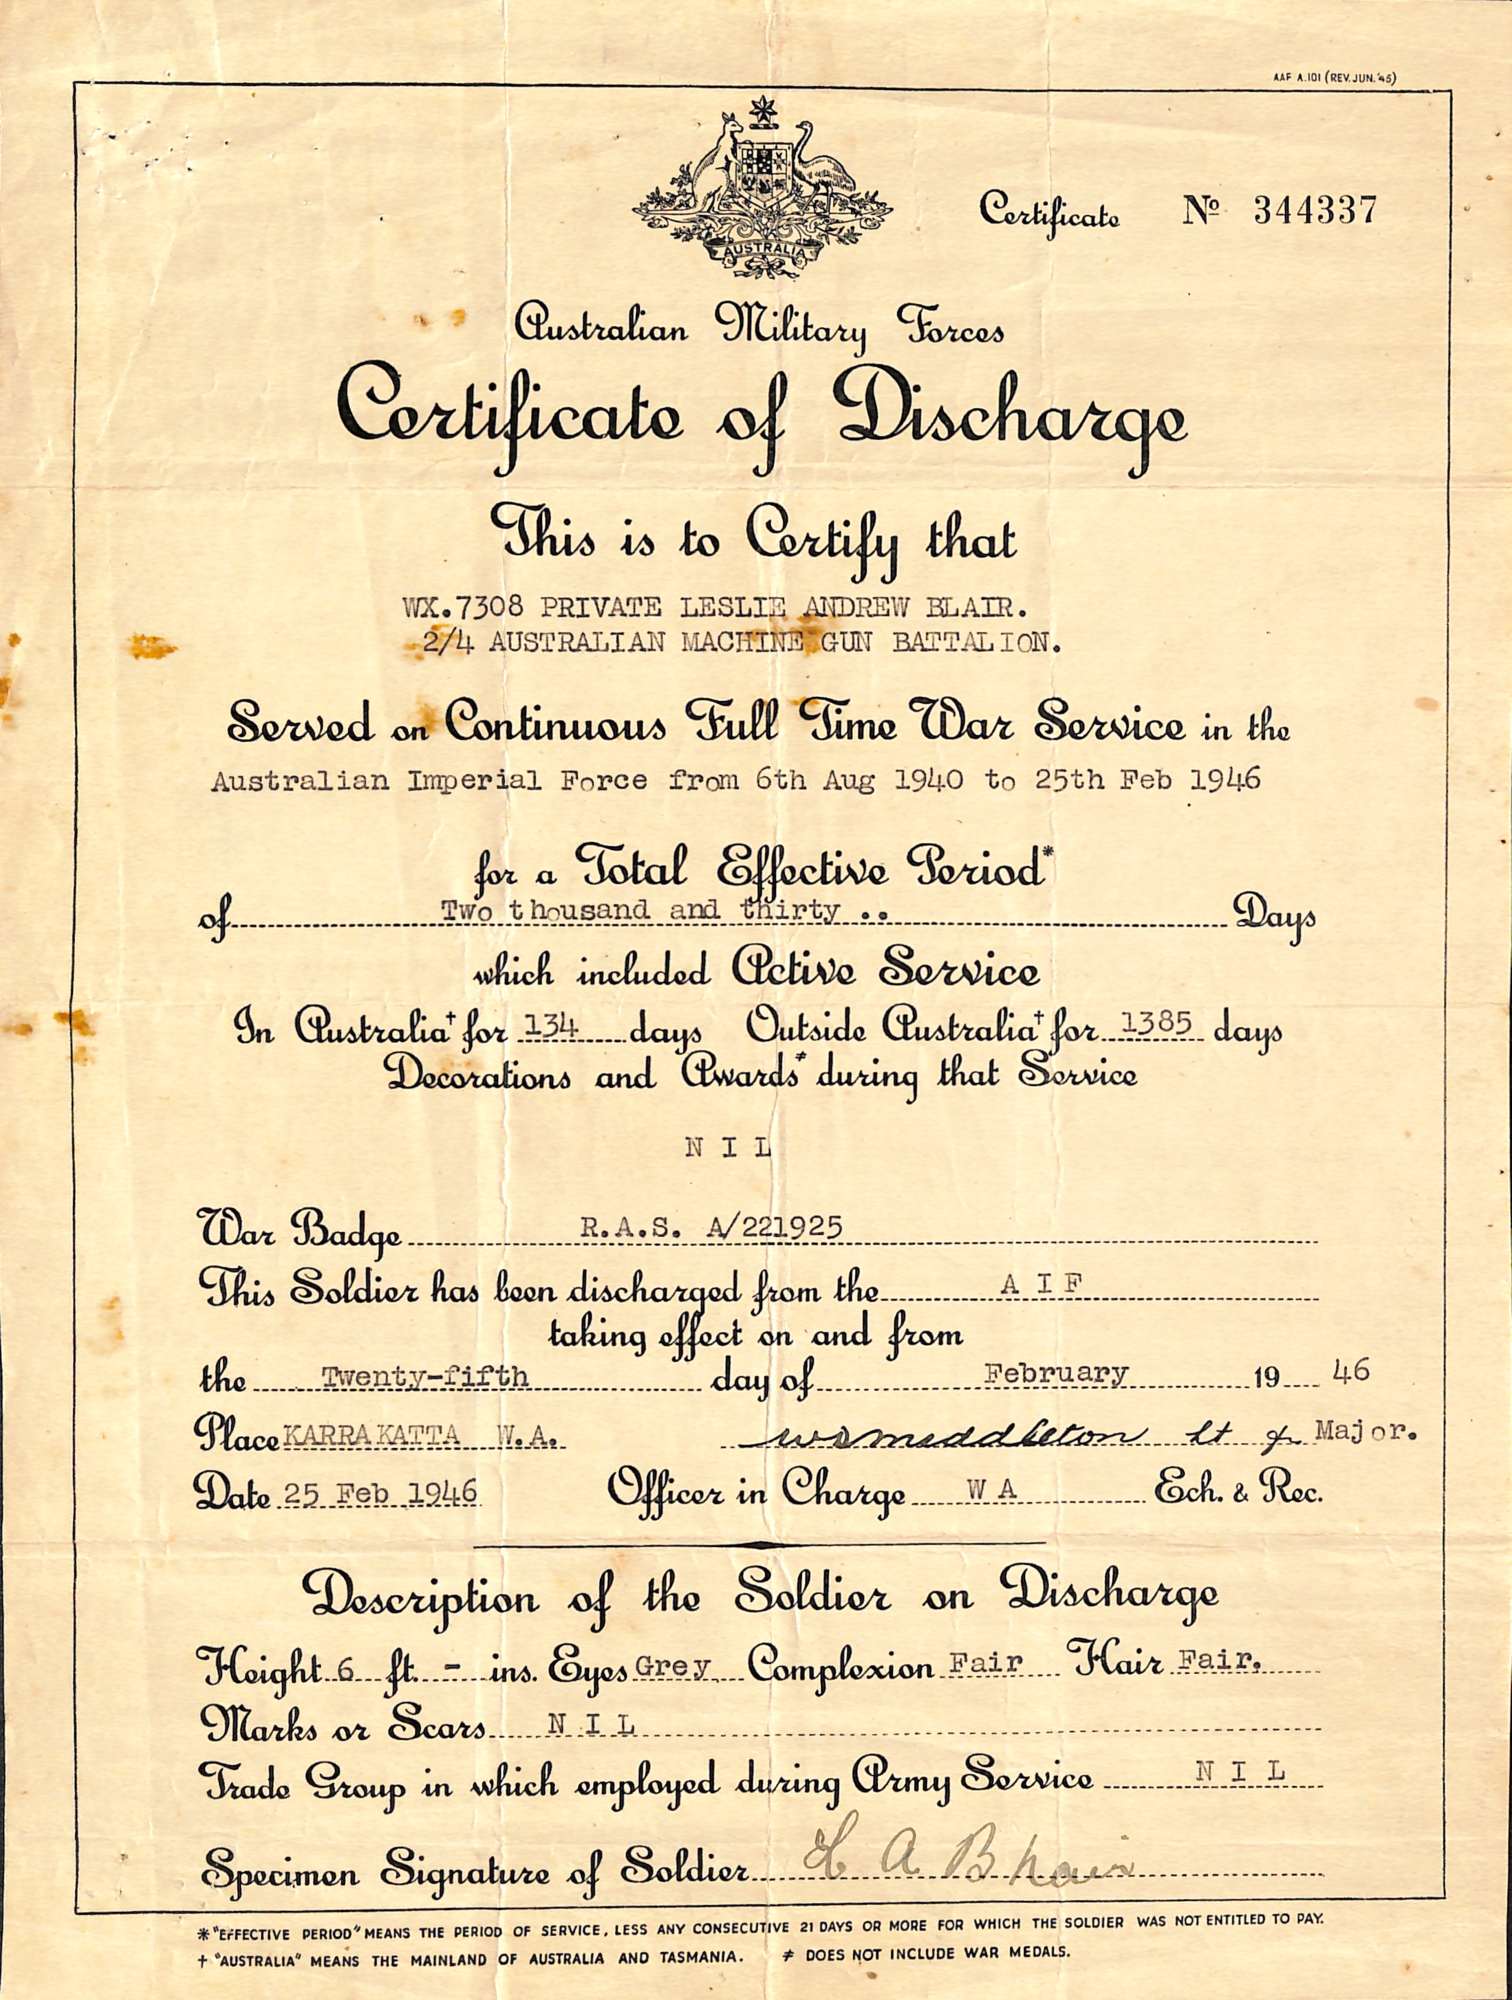 AAF A.101 (REV. JUN. '45)
AUSTRALIA
Certificate No 344337
Australian Military Forces
Certificate of Discharge
This is to Certify that
WX.7308 PRIVATE LESLIE ANDREW BLAIR.
2/4 AUSTRALIAN MACHINE GUN BATTALION.
Served on Continuous Full Time War Service in the
Australian Imperial Force from 6th Aug 1940 to 25th Feb 1946
for a Total Effective Period*
of Two thousand and thirty .. Days
which included Active Service
In Australia† for 134 days Outside Australia† for 1385 days
Decorations and Awards≠ during that Service
N I L
War Badge R.A.S. A/221925
This Soldier has been discharged from the A I F
taking effect on and from
the Twenty-fifth day of February 19 46
Place KARRAKATTA W.A. Middleton Lt Major.
Date 25 Feb 1946 Officer in Charge W A Ech. & Rec.
Description of the Soldier on Discharge
Height 6 ft. - ins. Eyes Grey Complexion Fair Hair Fair.
Marks or Scars N I L
Trade Group in which employed during Army Service N I L
Specimen Signature of Soldier L A Blair
* "EFFECTIVE PERIOD" MEANS THE PERIOD OF SERVICE, LESS ANY CONSECUTIVE 21 DAYS OR MORE FOR WHICH THE SOLDIER WAS NOT ENTITLED TO PAY.
† "AUSTRALIA" MEANS THE MAINLAND OF AUSTRALIA AND TASMANIA. ≠ DOES NOT INCLUDE WAR MEDALS.